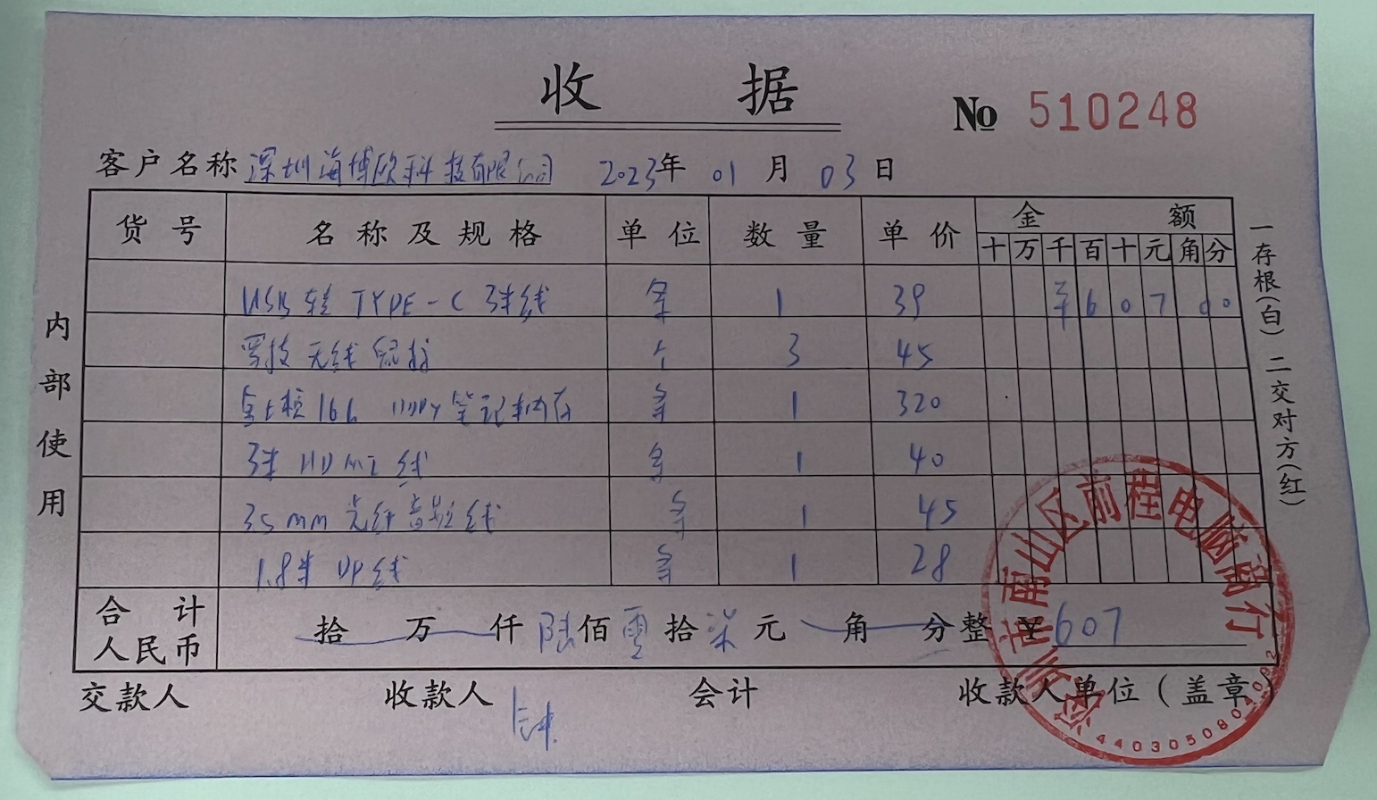 收 据
No 510248
客户名称 深圳海博欧科技有限公司 2023年 01 月 03 日
货号 名称及规格 单位 数量 单价 金额
十 万 千 百 十 元 角 分
USB转 TYPE-C 3米线 条 1 39 ¥ 6 0 7 0 0
罗技无线鼠标 个 3 45
金士顿 16G 笔记本内存 条 1 320
3米 HDMI 线 条 1 40
35mm 光纤音频线 条 1 45
1.8米 DP线 条 1 28
合计人民币 拾 万 仟 陆 佰 零 拾 柒 元 角 分整 ¥ 607
交款人 收款人 会计 收款人单位(盖章)
内部使用
一存根(白) 二交对方(红)
深圳市南山区前程电脑商行